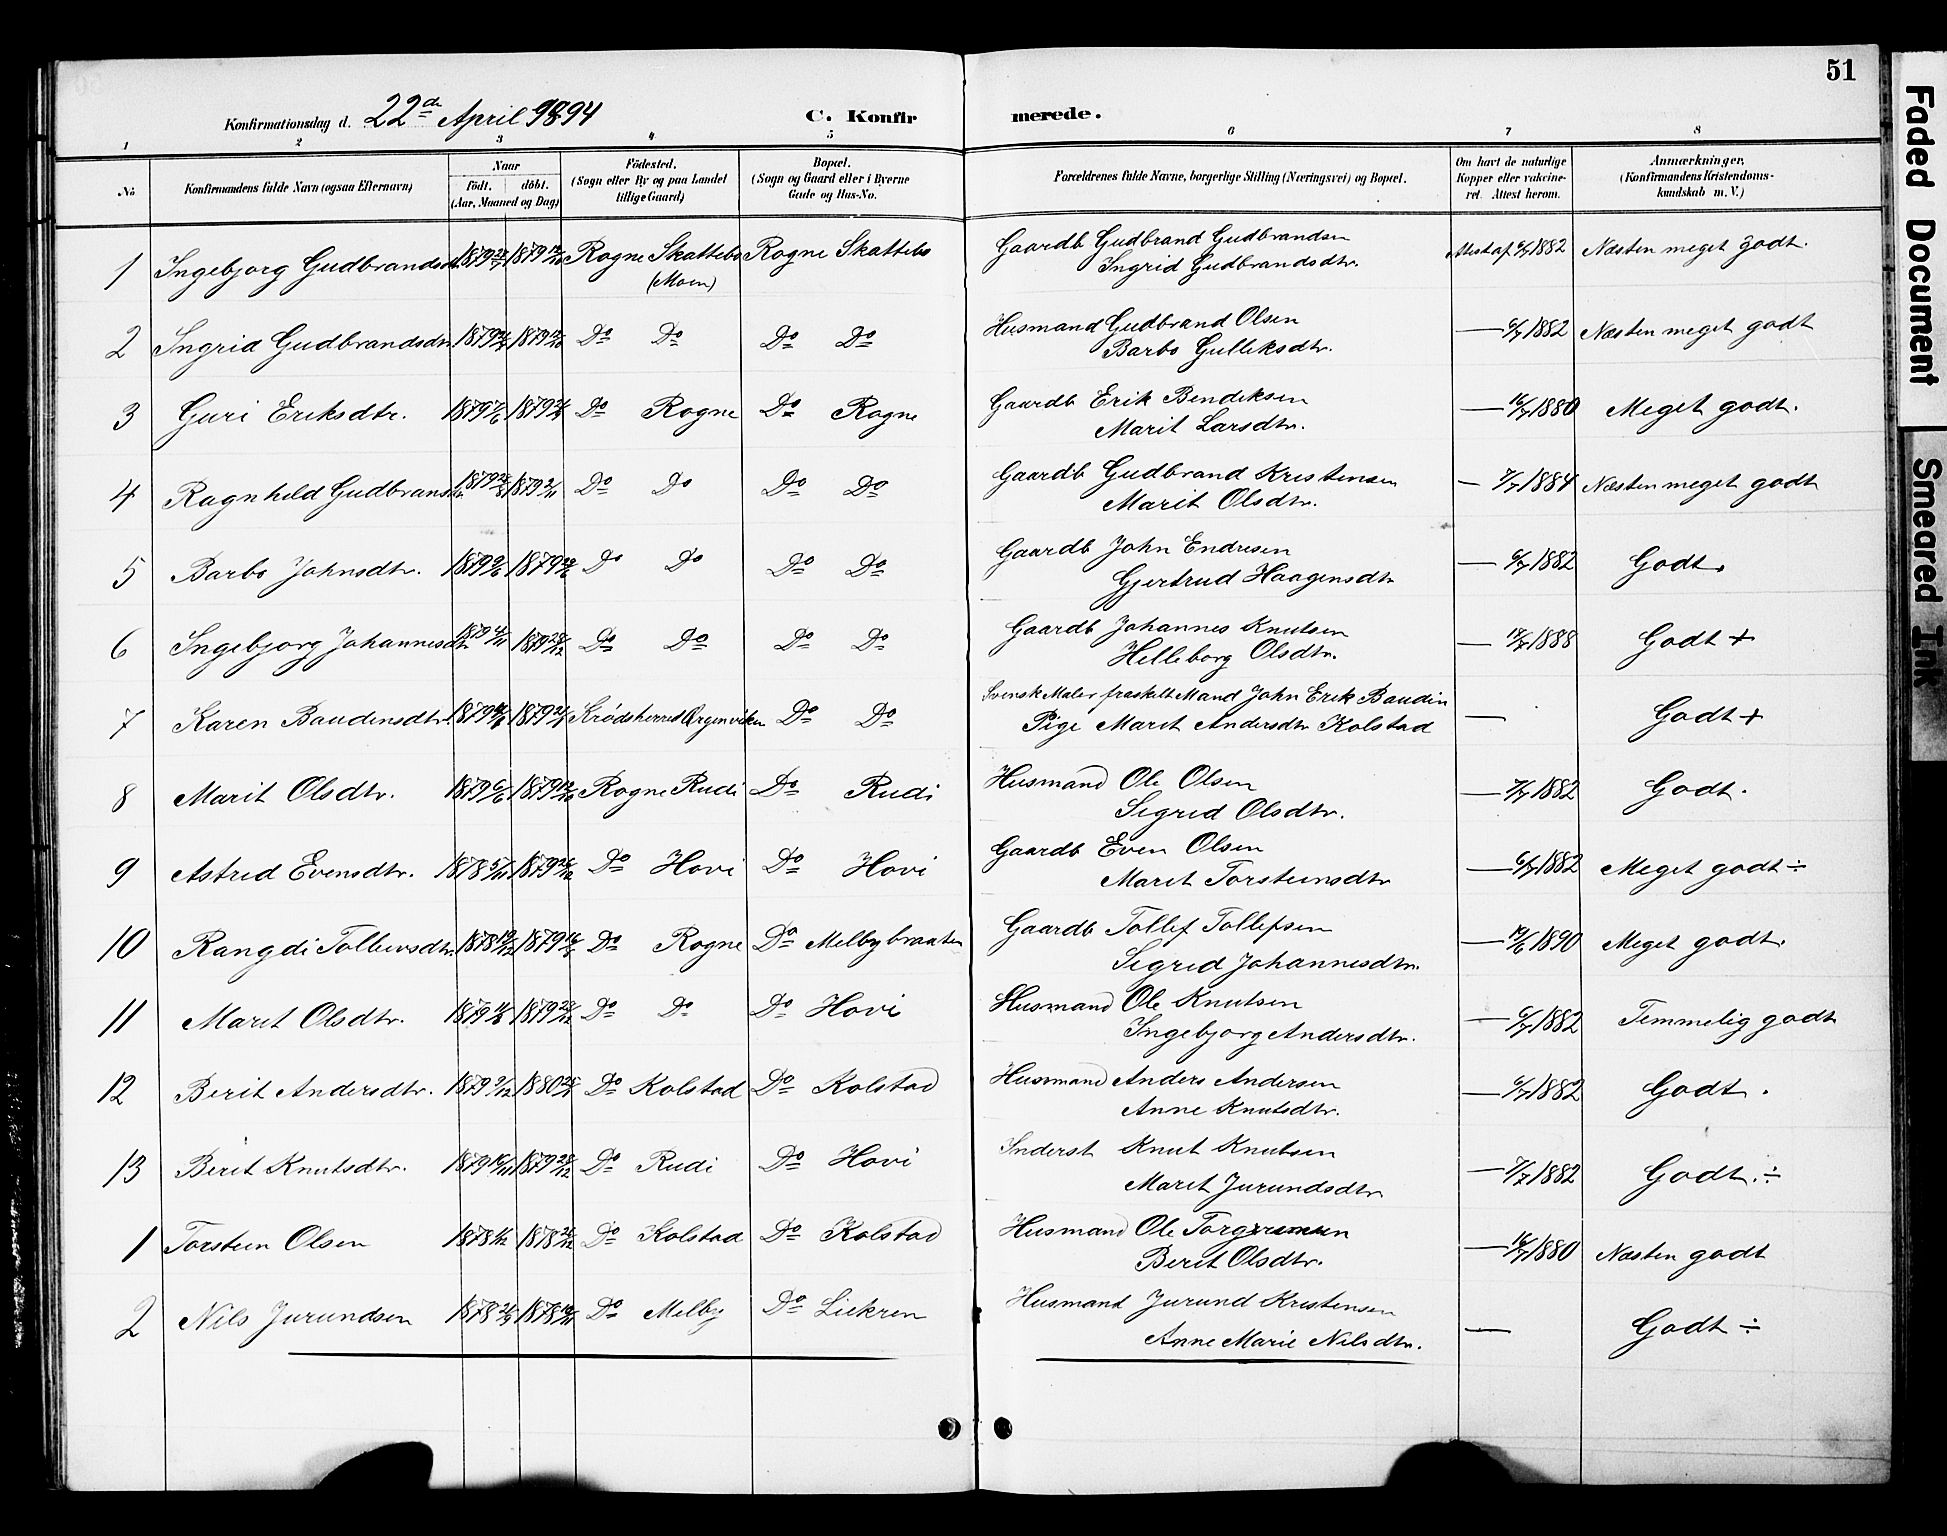 51
Konfirmationsdag d. 22de April 1894
C. Konfirmerede.
1 2 3 4 5 6 7 8
No
Konfirmandens fulde Navn (ogsaa Efternavn)
Naar
födt. döbt.
(Aar, Maaned og Dag)
Födested.
(Sogn eller By og paa Landet
tillige Gaard)
Bopæl.
(Sogn og Gaard eller i Byerne
Gade og Hus-No.
Forældrenes fulde Navne, borgerlige Stilling (Næringsvei) og Bopæl.
Om havt de naturlige
Kopper eller vakcine-
ret. Attest herom.
Anmærkninger,
(Konfirmandens Kristendoms-
kundskab m. V.)
1 Ingebjorg Gudbrandsdtr. 1879 1879 Rogne Skattebo Rogne Skattebo Gaardb Gudbrand Gudbrandsen Attest af 6/7 1882 Næsten meget godt.
(Moen) Ingrid Gudbrandsdtr.
2 Ingrid Gudbrandsdtr. 1879 1879 Do Do Do Do Husmand Gudbrand Olsen — 6/7 1882 Næsten meget godt
Barbo Gulleksdtr.
3 Guri Eriksdtr. 1879 1879 Do Rogne Do Rogne Gaardb Erik Bendiksen — 16/7 1880 Meget godt.
Marit Larsdtr.
4 Ragnhild Gudbransdtr 1879 1879 2/11 Do Do Do Do Gaardb Gudbrand Kristensen — 7/7 1884 Næsten meget godt
Marit Olsdtr.
5 Barbo Johnsdtr. 1879 1879 Do Do Do Do Gaardb John Endresen — 6/7 1882 Godt.
Gjertrud Haagensdtr
6 Ingebjorg Johannesdtr 1879 4/11 1879 28/12 Do Do Do Do Gaardb Johannes Knutsen — 1888 Godt +
Helleborg Olsdtr.
7 Karen Baudinsdtr. 1879 1879 Krødsherred Ørgenviken Do Do Svensk Maler fraskilt Mand John Erik Baudin — Godt +
Pige Marit Andersdtr Kolstad
8 Marit Olsdtr. 1879 1879 Rogne Rudi Do Rudi Husmand Ole Olsen — 7/7 1882 Godt.
Sigrid Olsdtr.
9 Astrid Evensdtr. 1878 5/11 1879 Do Hovi Do Hovi Gaardb Even Olsen — 6/7 1882 Meget godt ÷
Marit Torsteinsdtr
10 Rangdi Tollevsdtr. 1878 1879 Do Rogne Do Melbybraaten Gaardb Tollef Tollefsen — 19/6 1890 Meget godt.
Sigrid Johannesdtr.
11 Marit Olsdtr. 1879 1879 28/12 Do Do Do Hovi Husmand Ole Knutsen — 6/7 1882 Temmelig godt
Ingebjorg Andersdtr.
12 Berit Andersdtr. 1879 9/12 1880 Do Kolstad Do Kolstad Husmand Anders Andersen — 6/7 1882 Godt.
Anne Knutsdtr.
13 Berit Knutsdtr. 1879 16/11 1879 28/12 Do Rudi Do Hovi Inderst Knut Knutsen — 7/7 1882 Godt. ÷
Marit Jurundsdtr
1 Torstein Olsen 1878 1/12 1878 26/12 Do Kolstad Do Kolstad Husmand Ole — 16/7 1880 Næsten godt
Berit Olsdtr.
2 Nils Jurundsen 1878 1878 Do Melby Do Liekren Husmand Jurund Kristensen — Godt ÷
Anne Marie Nilsdtr.
Faded Document
Smeared Ink